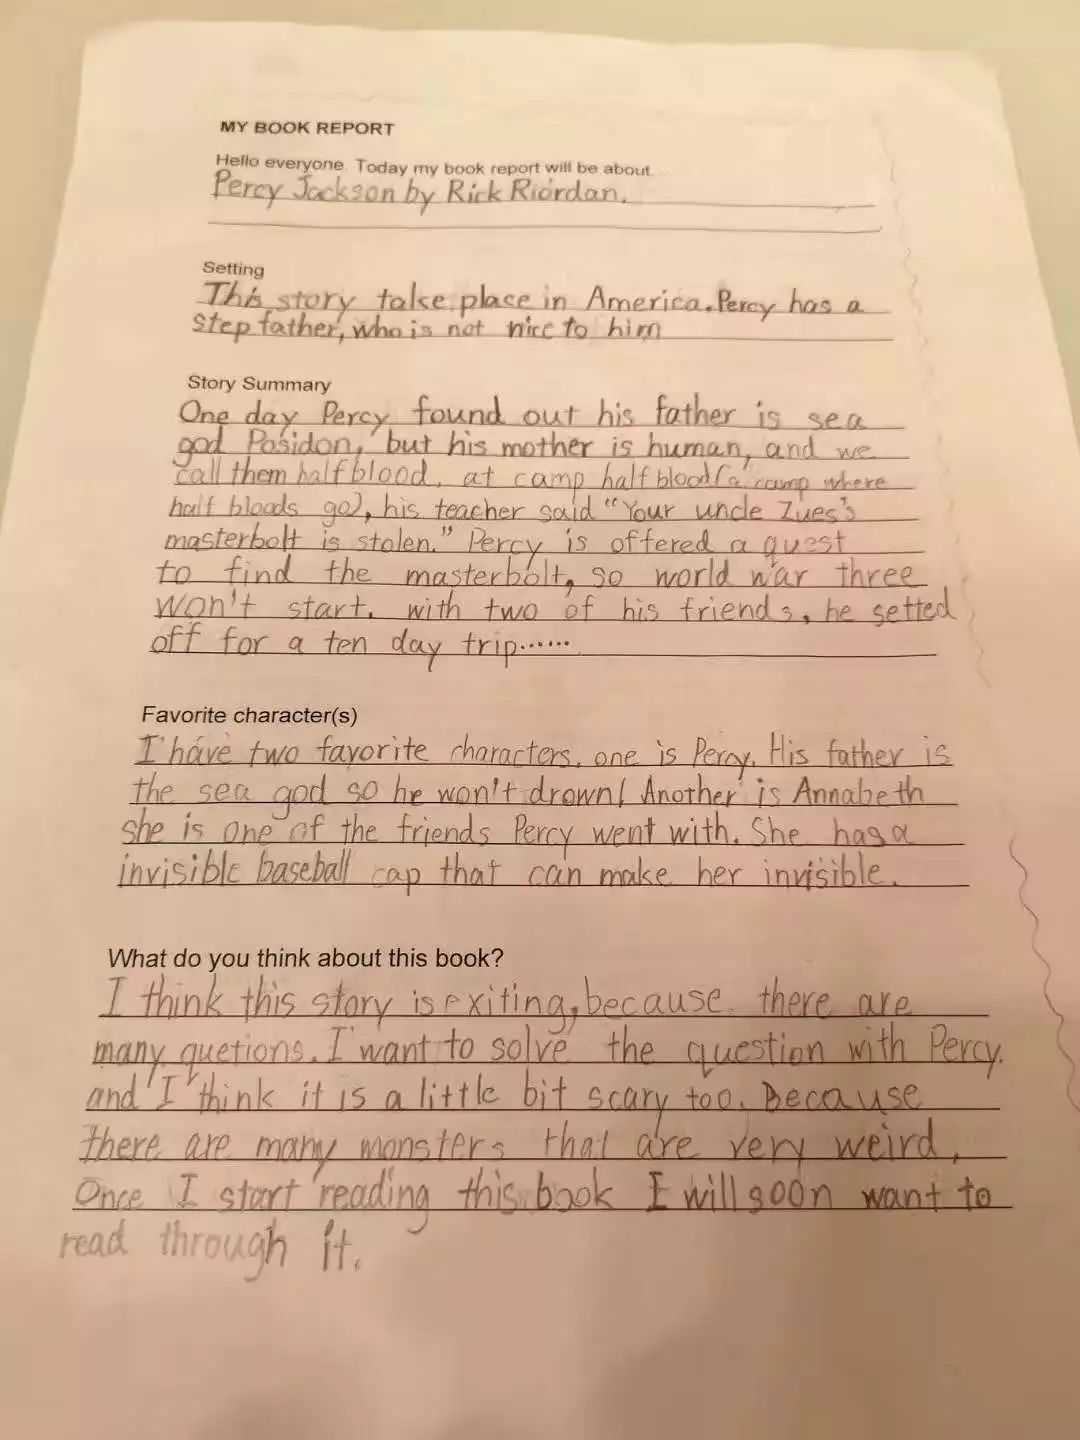 MY BOOK REPORT
Hello everyone. Today my book report will be about
Percy Jackson by Rick Riordan.
Setting
This story take place in America. Percy has a
step father, who is not nice to him
Story Summary
One day Percy found out his father is sea
god Posidon, but his mother is human, and we
call them half blood. at camp half blood (a camp where
half bloods go), his teacher said "Your uncle Zues's
masterbolt is stolen." Percy is offered a quest
to find the masterbolt, so world war three
won't start. with two of his friends, he setted
off for a ten day trip......
Favorite character(s)
I have two favorite characters. one is Percy. His father is
the sea god so he won't drown! Another is Annabeth
she is one of the friends Percy went with. She has a
invisible baseball cap that can make her invisible.
What do you think about this book?
I think this story is exiting, because there are
many quetions. I want to solve the question with Percy.
and I think it is a little bit scary too. Because
there are many monsters that are very weird.
Once I start reading this book I will soon want to
read through it.